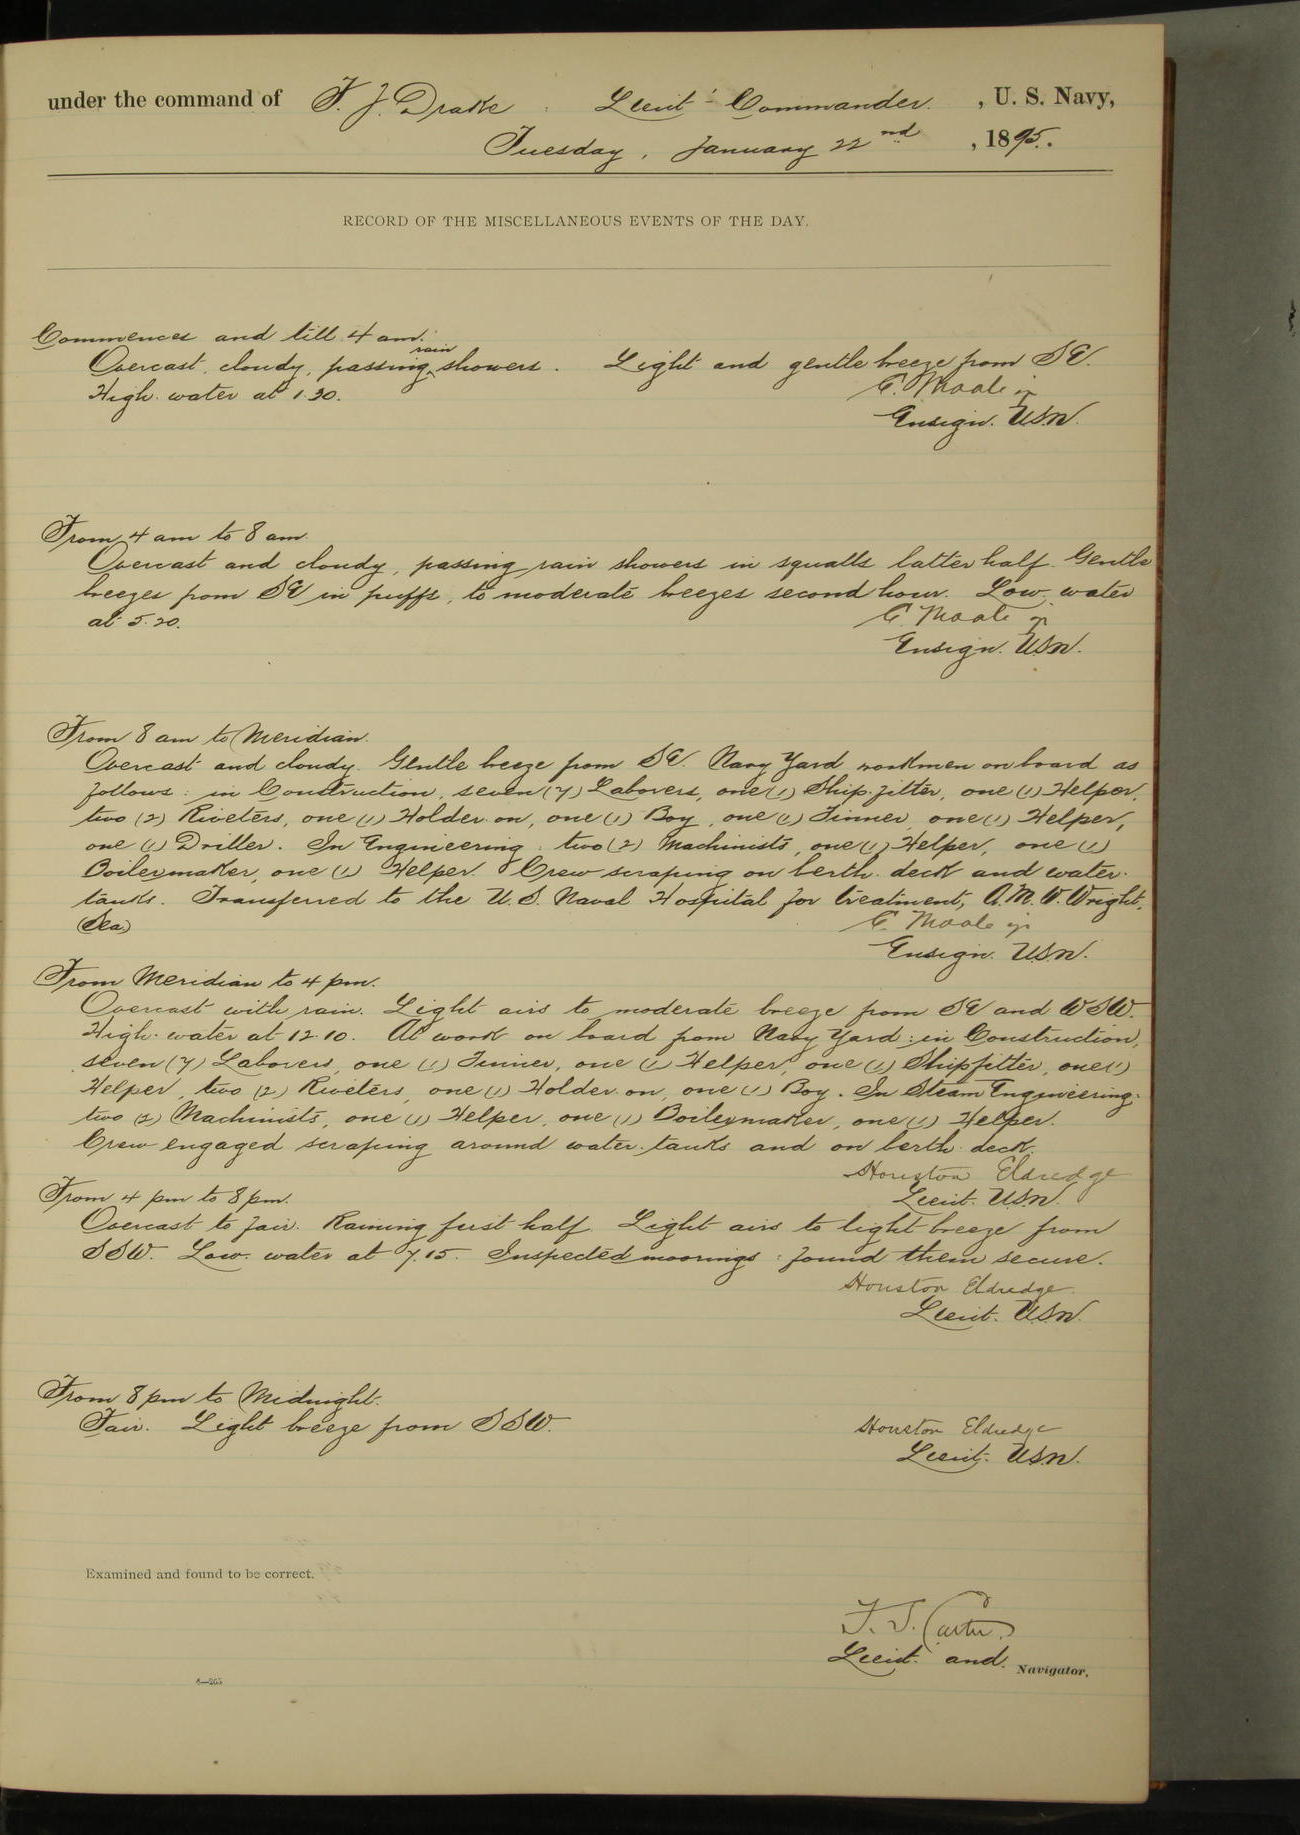 under the command of F. J. Drake, Lieut - Commander, U. S. Navy,
Tuesday, January 22nd, 1895.
RECORD OF THE MISCELLANEOUS EVENTS OF THE DAY.
Commences and till 4 am.
Overcast, cloudy, passing rain showers. Light and gentle breeze from SE.
High water at 1.30.
C. Moale jr
Ensign. USN.
From 4 am to 8 am.
Overcast and cloudy, passing rain showers in squalls latter half. Gentle
breezes from SE in puffs, to moderate breezes second hour. Low water
at 5.20.
C. Moale jr
Ensign. USN.
From 8 am to Meridian.
Overcast and cloudy. Gentle breeze from SE. Navy Yard workmen on board as
follows: in Construction, seven (7) Laborers, one (1) Ship-fitter, one (1) Helper,
two (2) Riveters, one (1) Holder-on, one (1) Boy, one (1) Tinner, one (1) Helper,
one (1) Driller. In Engineering: two (2) Machinists, one (1) Helper, one (1)
Boilermaker, one (1) Helper. Crew scraping on berth-deck and water-
tanks. Transferred to the U.S. Naval Hospital for treatment, A. M. W. Wright,
(Sea)
C. Moale jr
Ensign. USN.
From Meridian to 4 pm.
Overcast with rain. Light airs to moderate breeze from SE and WSW.
High-water at 12.10. At work on board from Navy Yard: in Construction,
seven (7) Laborers, one (1) Tinner, one (1) Helper, one (1) Shipfitter, one (1)
Helper, two (2) Riveters, one (1) Holder on, one (1) Boy. In Steam Engineering:
two (2) Machinists, one (1) Helper, one (1) Boilermaker, one (1) Helper.
Crew engaged scraping around water-tanks and on berth-deck.
Houston Eldredge
Lieut. USN.
From 4 pm to 8 pm.
Overcast to fair. Raining first half. Light airs to light breeze from
SSW. Low-water at 7.15. Inspected moorings: found them secure.
Houston Eldredge
Lieut. USN.
From 8 pm to Midnight.
Fair. Light breeze from SSW.
Houston Eldredge
Lieut. USN.
Examined and found to be correct.
F. S. Carter
Lieut. and Navigator.
6—205